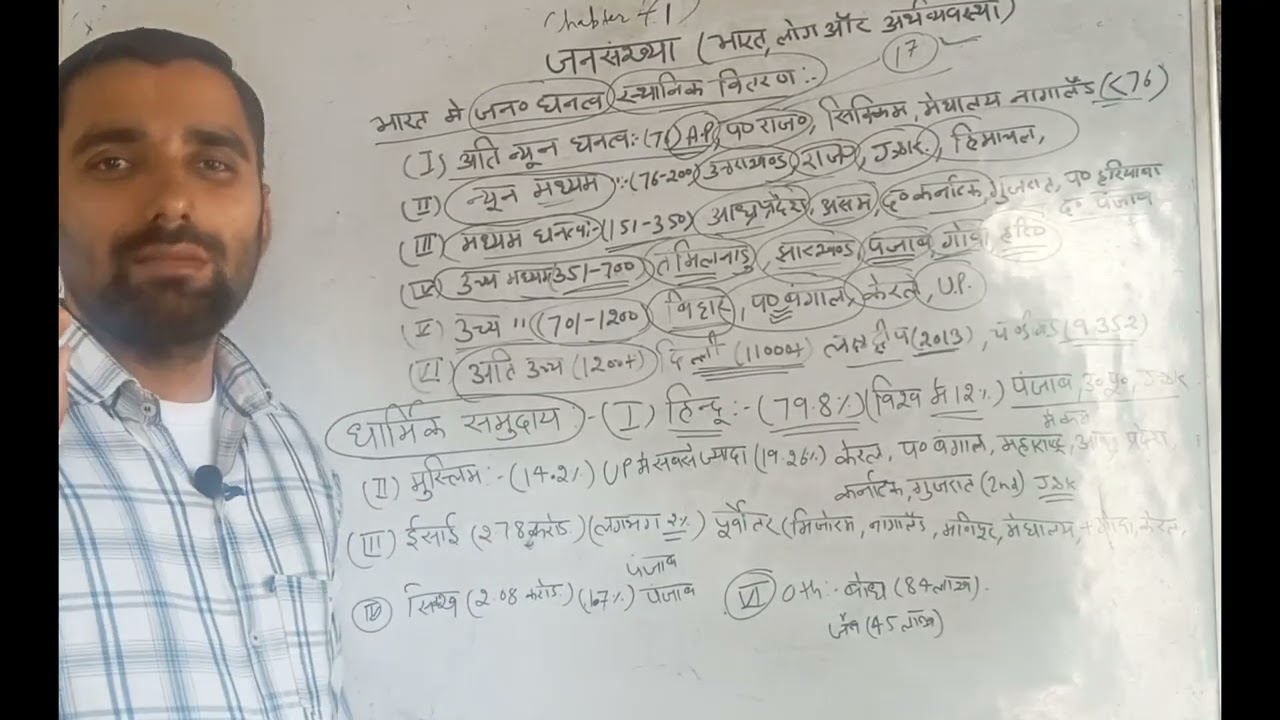 Chapter # 1
जनसंख्या (भारत, लोग और अर्थव्यवस्था)
17
भारत मे जन० घनत्व स्थानिक वितरण :-
(I) अति न्यून घनत्व:- (76 A.P, प० राज०, सिक्किम, मेघालय नागालैंड (<76)
(II) न्यून मध्यम :- (76-200) उत्तराखण्ड राज०, J&K, हिमाचल,
(III) मध्यम घनत्व:- (151-350) आंध्र प्रदेश, असम, द० कर्नाटक, गुजरात, प० हरियाणा
द० पंजाब
(IV) उच्च मध्यम (351-700 तमिलनाडु, झारखण्ड, पंजाब, गोवा, हरि०
(V) उच्च " (701-1200) बिहार, प० बंगाल, केरल, U.P.
(VI) अति उच्च (1200+) दिल्ली (11000+ लक्षद्वीप (2013), चंडीगढ़ (9352)
धार्मिक समुदाय :- (I) हिन्दू :- (79.8%) (विश्व मे 12%) पंजाब, उ० पू०, J&K
मे कम
(II) मुस्लिम :- (14.2%) UP मे सबसे ज्यादा (19.26%) केरल, प० बंगाल, महाराष्ट्र, आन्ध्र प्रदेश,
कर्नाटक, गुजरात (2nd) J&K
(III) ईसाई (2.78 करोड़) (लगभग 2%) पूर्वोत्तर (मिजोरम, नागालैंड, मणिपुर, मेघालय, + गोवा, केरल,
पंजाब
(IV) सिक्ख (2.08 करोड़) (1.7%) पंजाब (VI) Oth:- बौद्ध (84 लाख).
जैन (45 लाख)